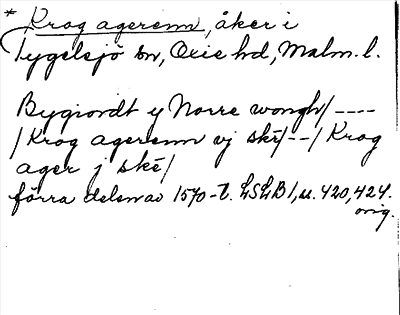 * Krog agerenn, åker i
Tygelsjö sn, Oxie hd, Malm. l.
Bygiordt y Norre wongh/----
/Krog agerenn vj skē/--/Krog
ager j skē/
förra delen av 1570-t. LSLB 1, s. 420, 424.
orig.